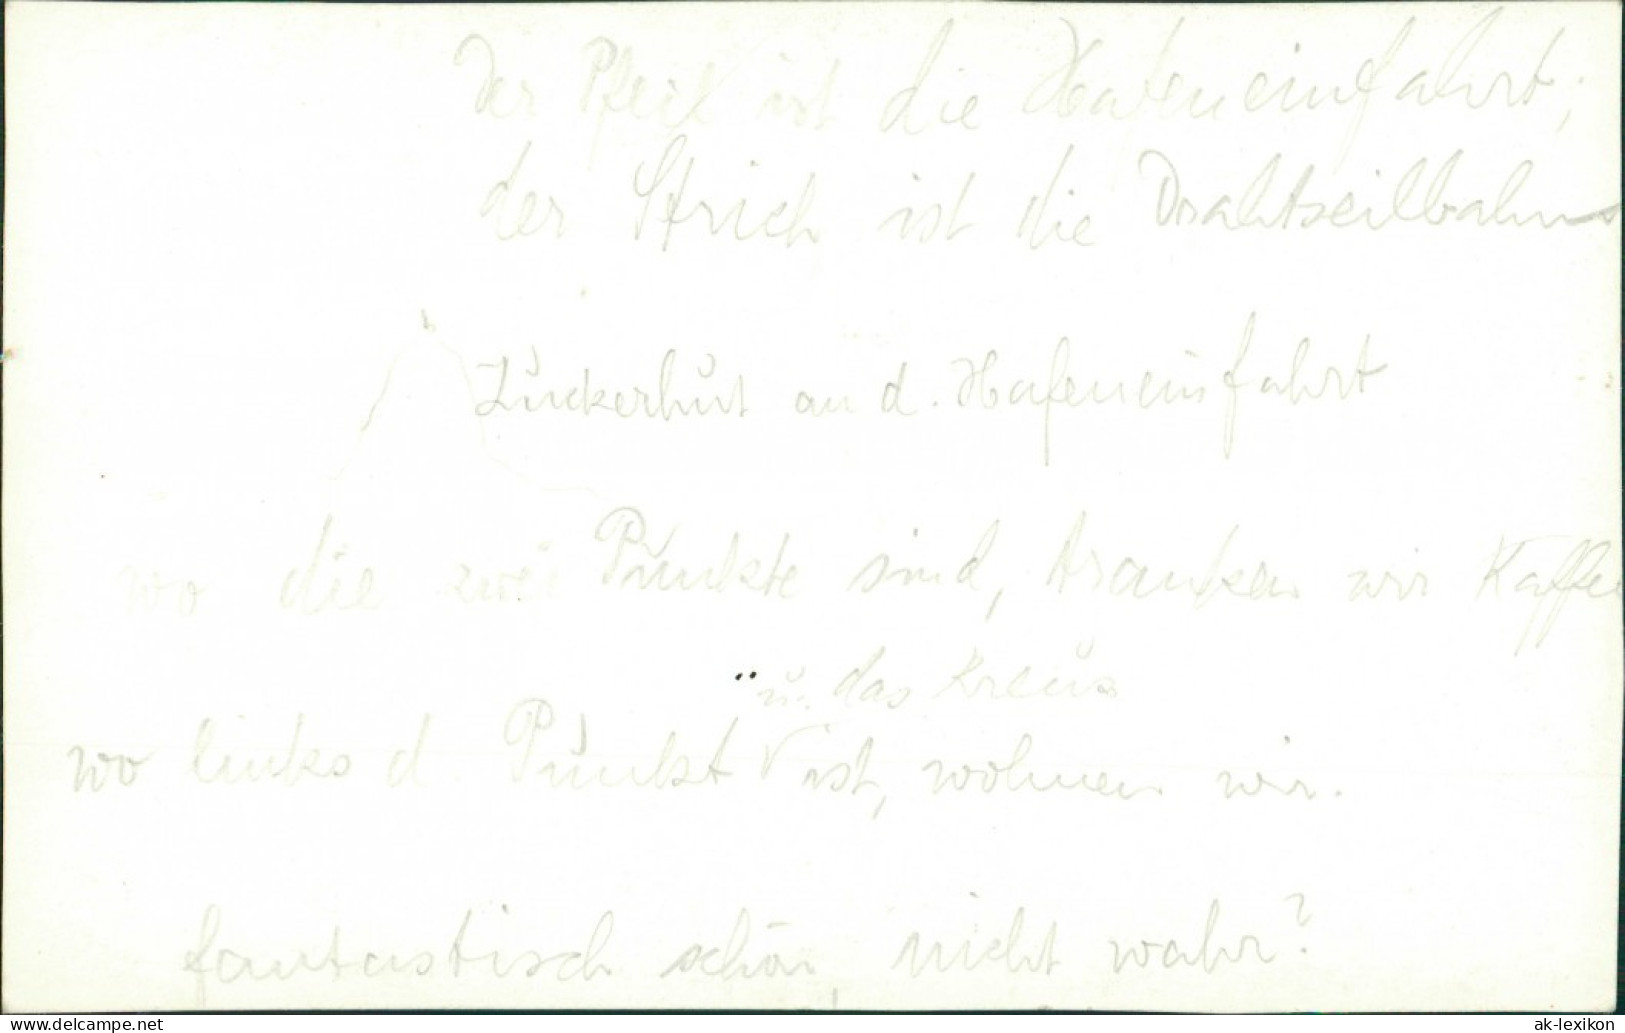 Der Pfeil ist die Hafeneinfahrt;
der Strich ist die Drahtseilbahn
Zuckerhut an d. Hafeneinfahrt
wo die zwei Punkte sind, tranken wir Kaffee
u. das Kreuz
wo links d. Punkt V ist, wohnen wir.
fantastisch schön, nicht wahr?
www.delcampe.net
ak-lexikon